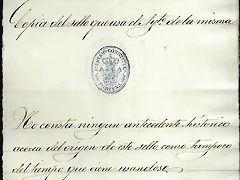 Copia del sello que usa de Sg.º de la misma
No consta ningun antecedente histórico
acerca del origen de este sello, como tampoco
del tiempo que viene usandose.